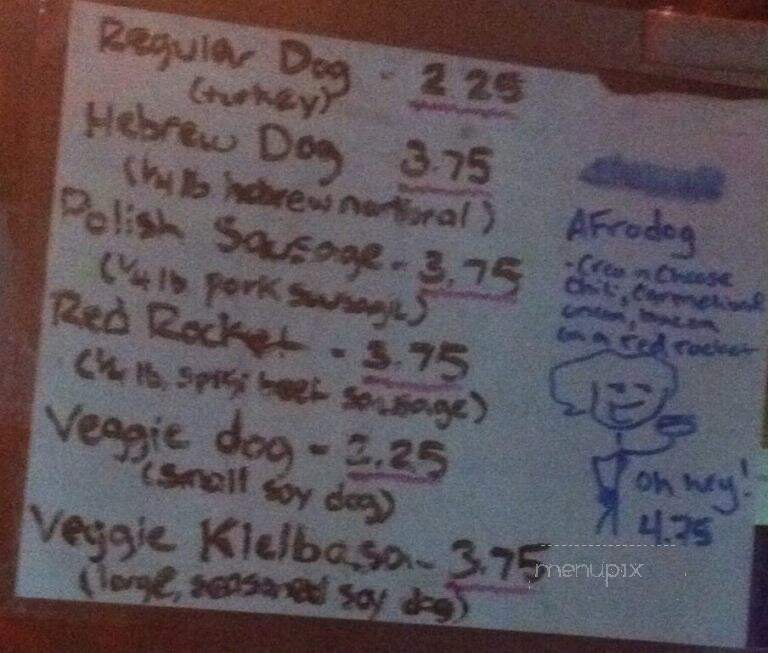 Regular Dog - 2 25
(turkey)
Hebrew Dog 3.75
(1/4 lb hebrew national)
Polish Sausage - 3.75
(1/4 lb pork sausage)
Red Rocket - 3.75
(1/4 lb, spicy beef sausage)
Veggie dog - 2.25
(small soy dog)
Veggie Kielbasa - 3.75
(large, seasoned soy dog)
AFrodog
- Cream Cheese
Chili, Carmelized
onion, bacon
on a red rocket
oh hey!
4.75
menupix